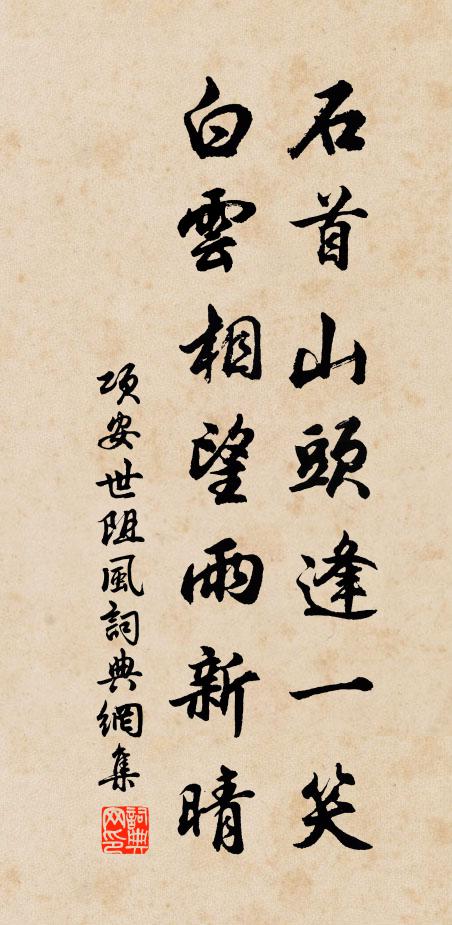 石首山頭逢一笑
白雲相望雨新晴
項安世阻風詞典網集
詞典網印